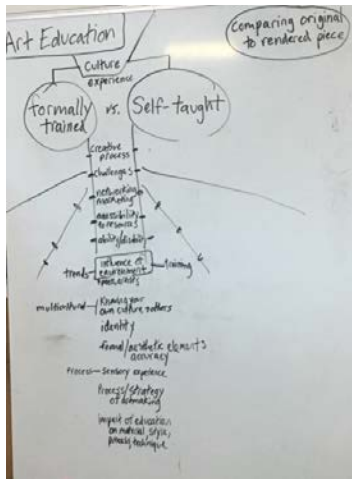 Art Education
Comparing original
to rendered piece
culture
experience
formally
trained
vs.
Self-taught
creative
process
challenges
networking
marketing
accessibility
to resources
ability/disabil
influence of
environment
trends
training
multicultural
Knowing your
own culture, others
identity
formal/aesthetic elements
accuracy
Process
Sensory experience
Process/strategy
of artmaking
impact of education
on material, style,
technique